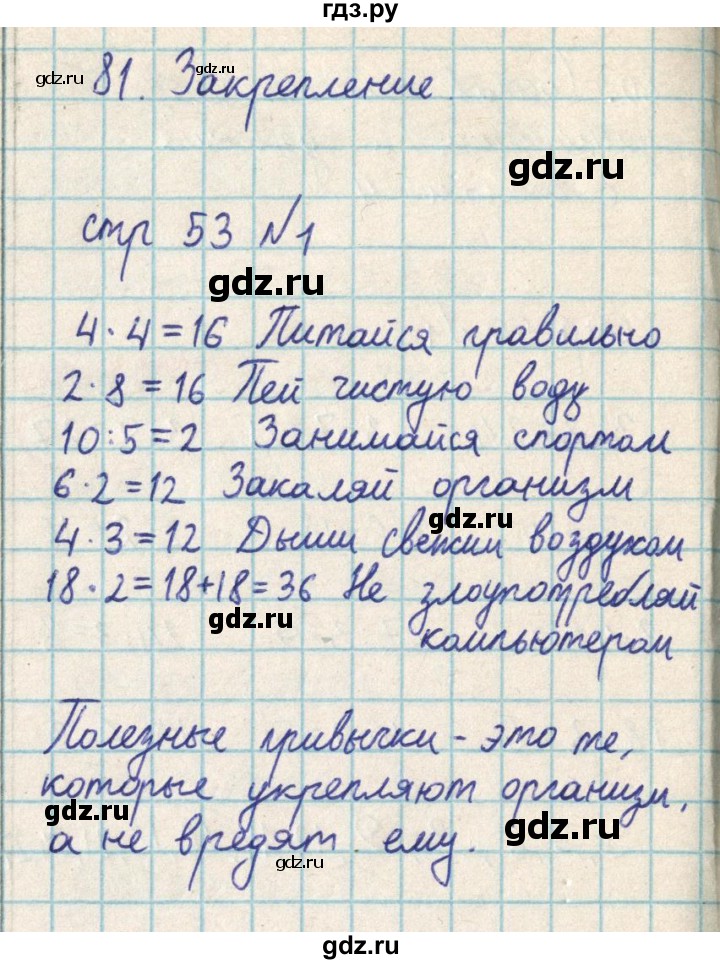 гдз.ру
gdz.ru
gdz.ru
81. Закрепление.
gdz.ru
стр 53 №1
gdz.ru
4·4=16 Питайся правильно
2·8=16 Пей чистую воду
10:5=2 Занимайся спортом
6·2=12 Закаляй организм
gdz.ru
4·3=12 Дыши свежим воздухом
18·2=18+18=36 Не злоупотребляй
gdz.ru
компьютером
Полезные привычки - это те,
которые укрепляют организм,
gdz.ru
gdz.ru
а не вредят ему.
gdz.ru
gdz.ru